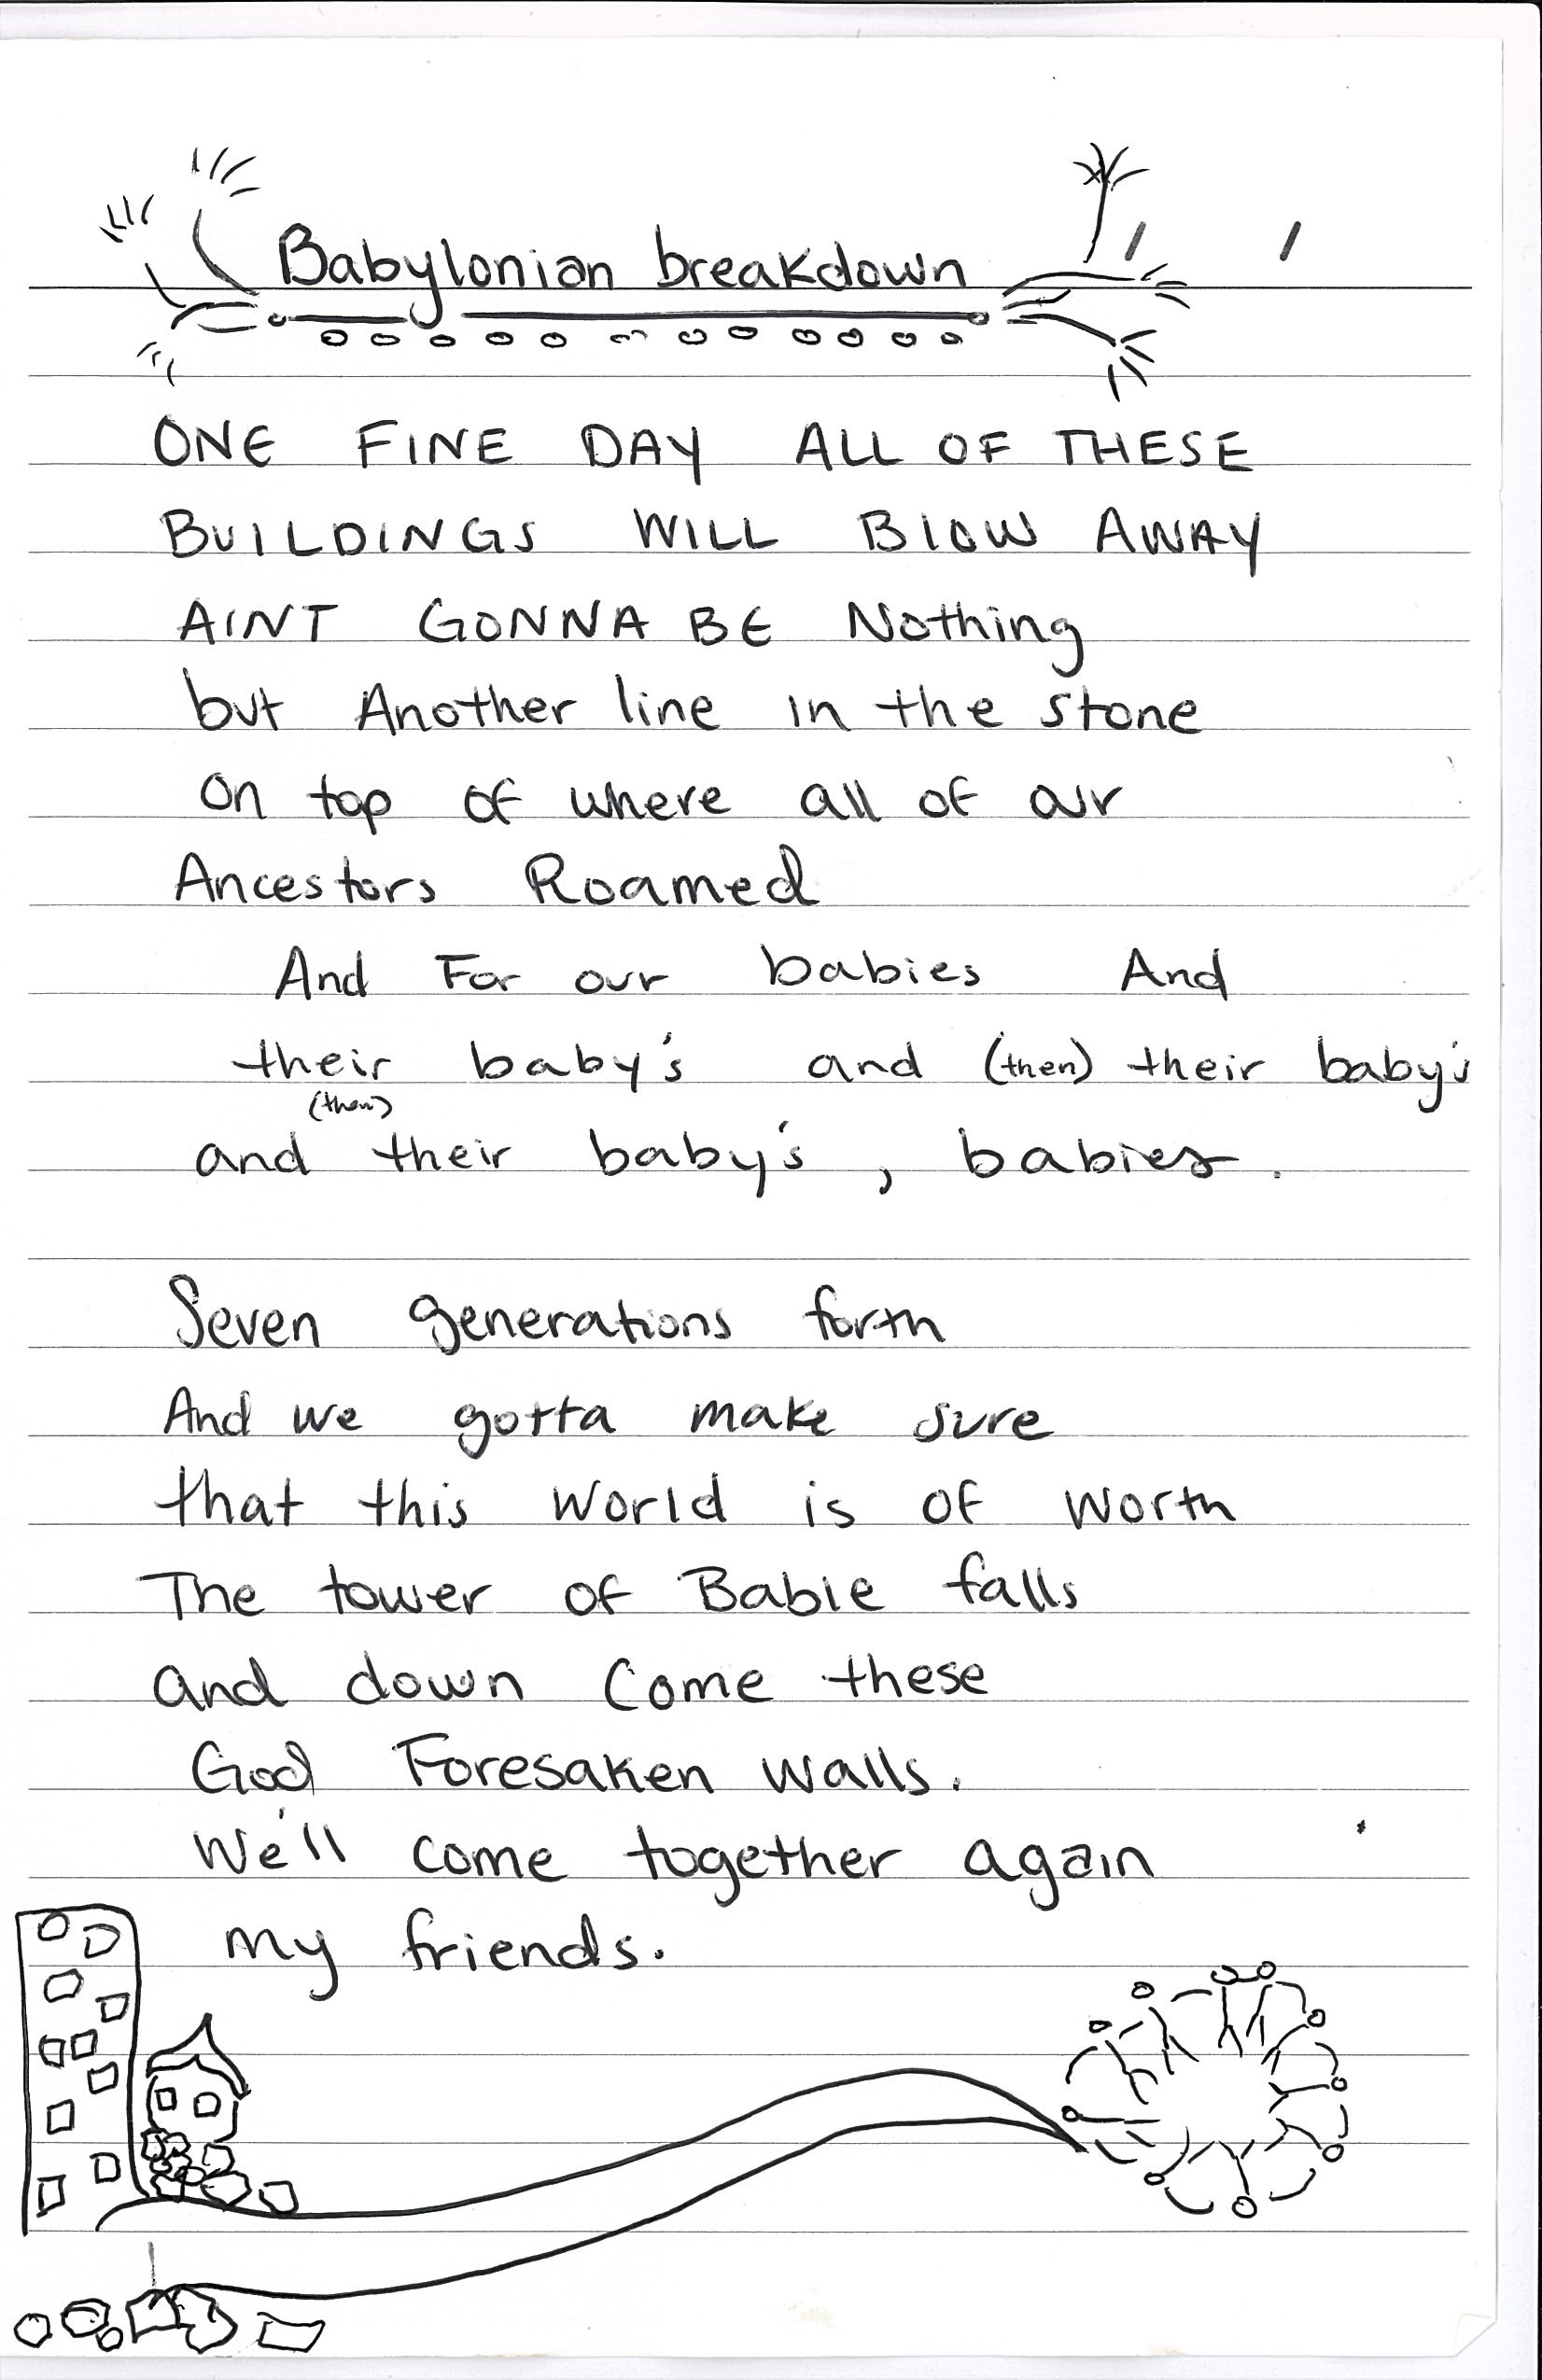 Babylonian breakdown
ONE FINE DAY ALL OF THESE
BUILDINGS WILL BLOW AWAY
AINT GONNA BE Nothing
but Another line in the stone
On top of where all of our
Ancestors Roamed
And For our babies And
their baby's and (then) their baby's
(then)
and their baby's, babies.
Seven generations forth
And we gotta make sure
that this world is of worth
The tower of Bable falls
and down come these
God Foresaken walls.
We'll come together again
my friends.